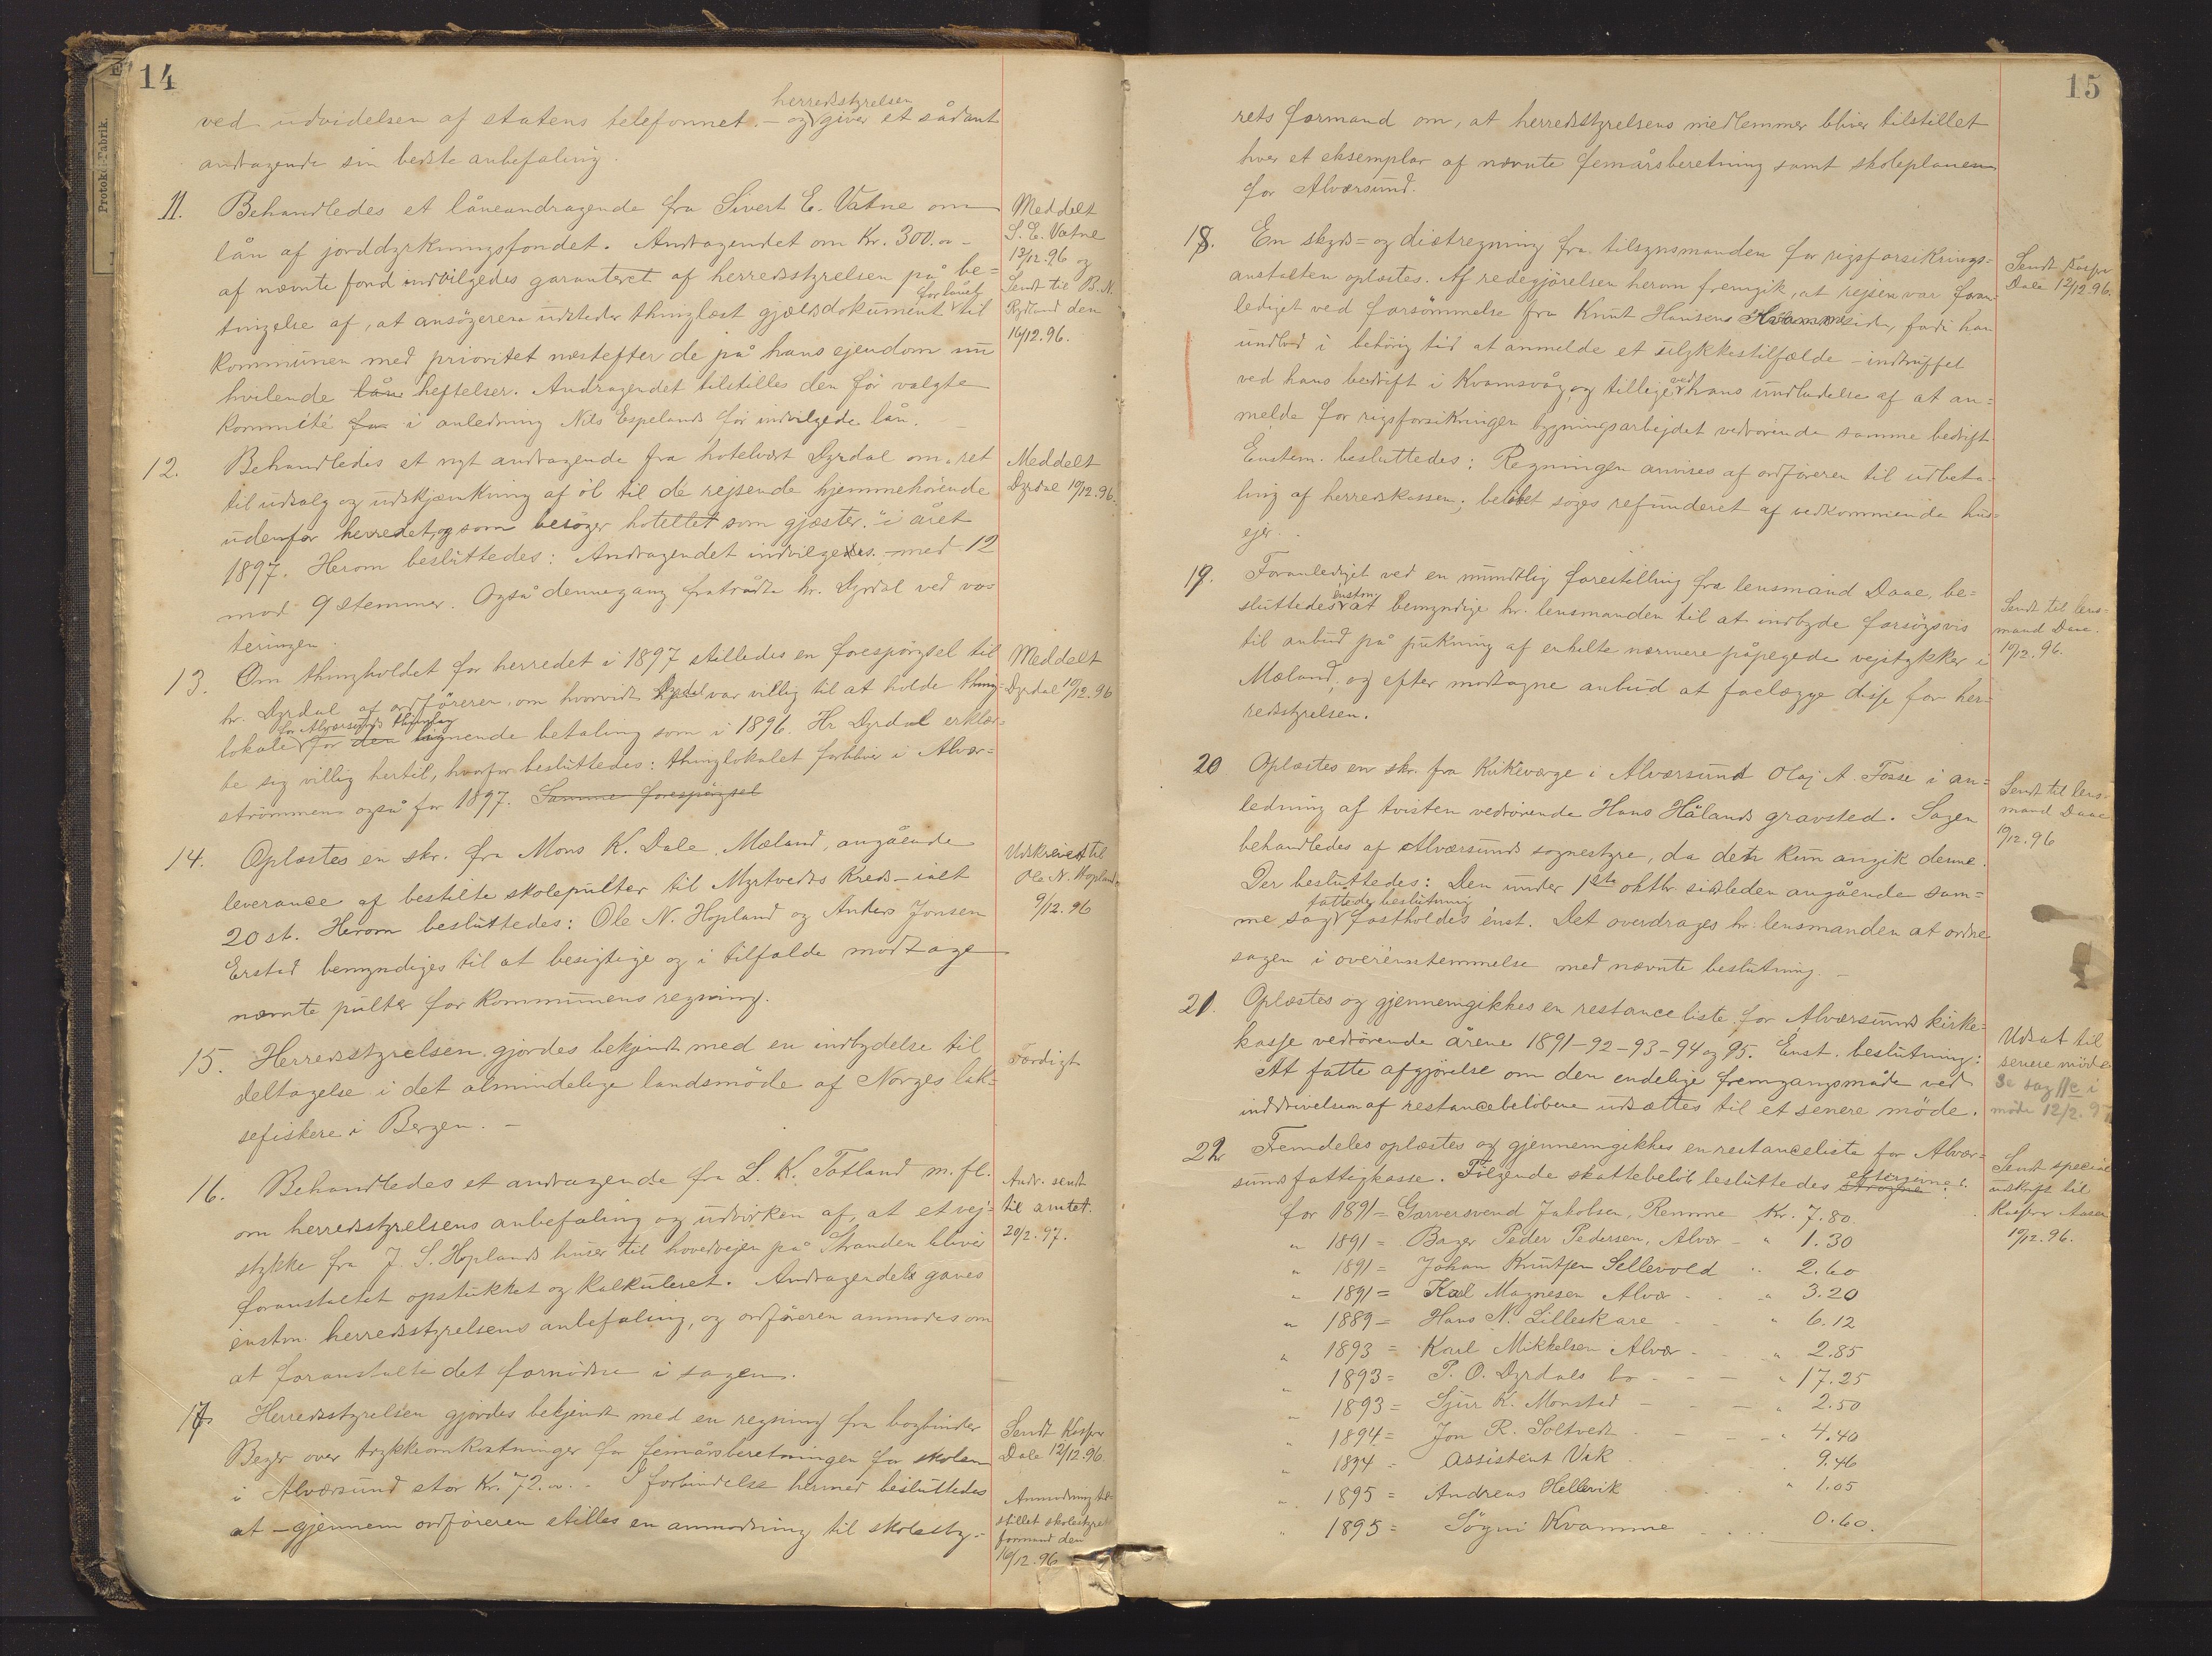 14
herredsstyrelsen
ved udvidelsen af statens telefonnet. - og giver et sådant
andragende sin bedste anbefaling.
11. Behandledes et låneandragende fra Sivert E. Vatne om
lån af jorddyrkningsfondet. Andragendet om Kr. 300.00 -
af nævnte fond indvilgedes garanteret af herredsstyrelsen på be=
for lånet
tingelse af, at ansøgeren udsteder thinglæst gjældsdokument til
kommunen med prioritet næstefter de på hans ejendom nu
hvilende lån heftelser. Andragendet tilstilles den før valgte
kommité fra i anledning Nils Espelands før indvilgede lån.
Meddelt
S. E. Vatne
13/12.96 og
Sendt til B. N.
Rydland den
16/12.96.
12. Behandledes et nyt andragende fra hotelvært Dyrdal om "ret
til udsalg og udskjænkning af øl til de rejsende hjemmehörende
udenfor herredet, og som besöger hotellet som gjæster." i året
1897. Herom besluttedes: Andragendet indvilgedes. - med 12
mod 9 stemmer. Også dennegang fratrådte hr. Dyrdal ved vo=
teringen.
Meddelt
Dyrdal 10/12.96.
13. Om thingholdet for herredet i 1897 stilledes en forespörgsel til
hr. Dyrdal af ordföreren, om hvorvidt Dyrdal var villig til at holde thing-
for Alværsunds thinglag
lokale for den lignende betaling som i 1896. Hr Dyrdal erklær=
te sig villig hertil, hvorfor besluttedes: thinglokalet forbliver i Alvær=
strömmen også for 1897. Samme forespörgsel
Meddelt
Dyrdal 10/12.96
14. Oplæstes en skr. fra Mons K. Dale, Mæland, angående
leverance af bestilte skolepulter til Myrtvedts kreds - ialt
20 st. Herom besluttedes: Ole N. Hopland og Anders Jonsen
Erstad bemyndiges til at besigtige og i tilfælde modtage
nævnte pulter for kommunens regning.
Udskrevet til
Ole N. Hopland
9/12.96
15. Herredsstyrelsen gjordes bekjendt med en indbydelse til
deltagelse i det almindelige landsmöde af Norges lak=
sefiskere i Bergen. -
Færdigt
16. Behandledes et andragende fra L. K. Totland m. fl.
om herredsstyrelsens anbefaling og udvirken af, at et vej=
stykke fra J. S. Hoplands huser til hovedvejen på Stranden bliver
foranstaltet opstukket og kalkuleret. Andragendet gaves
enstm. herredsstyrelsens anbefaling, og ordföreren anmodes om
at foranstalte det fornödne i sagen.
Andr. sendt
til amtet.
20/2.97.
17. Herredsstyrelsen gjordes bekjendt med en regning fra bogbinder
Beyer over trykkeomkostninger for femårsberetningen for skolen
i Alværsund stor Kr. 72.00. - I forbindelse hermed besluttedes
at - gjennem ordföreren stilles en anmodning til skolesty-
Sendt Kasser
Dale 12/12.96.
Anmodning til=
stillet skolestyrets
formand den
16/12.96
15
rets formand om, at herredsstyrelsens medlemmer bliver tilstillet
hver et eksemplar af nævnte femårsberetning samt skoleplanen
for Alværsund.
18. En skyds= og diætregning fra tilsynsmanden for rigsforsikrings=
anstalten oplæstes. Af redegjörelsen herom fremgik, at rejsen var foran=
lediget ved forsömmelse fra Knut Hansens side, fordi han
undlod i behörig tid at anmelde et ulykkestilfælde - indtruffet
ved hans bedrift i Kvamsvåg, og tillige ved hans undladelse af at an=
melde for rigsforsikringen bygningsarbejdet vedrörende samme bedrift.
Enstem. besluttedes: Regningen anvises af ordföreren til udbeta=
ling af herredskassen; belöbet söges refunderet af vedkommende hus=
ejer.
Sendt Kasser
Dale 12/12.96.
19. Foranlediget ved en mundtlig forestilling fra lensmand Daae, be=
sluttedes enstm. at bemyndige hr. lensmanden til at indbyde forsögsvis
til anbud på pukning af enkelte nærmere påpegede vejstykker i
Mæland, og efter modtagne anbud at forelægge disse for her=
redsstyrelsen.
Sendt til lens=
mand Daae.
10/12.96.
20 Oplæstes en skr. fra Kirkeværge i Alværsund Olaj A. Fosse i an=
ledning af tvisten vedrörende Hans Hålands gravsted. Sagen
behandledes af Alværsunds sognestyre, da den kun angik denne.
Der besluttedes: Den under 1ste oktbr. sidstleden angående sam=
fattede beslutning
me sag fastholdes énst. Det overdrages hr. lensmanden at ordne
sagen i overensstemmelse med nævnte beslutning. -
Sendt til lens=
mand Daae
10/12.96
21. Oplæstes og gjennemgikkes en restanceliste for Alværsunds kirke=
kasse vedrörende årene 1891-92-93-94 og 95. Enst. beslutning:
At fatte afgjörelse om den endelige fremgangsmåde ved
inddrivelsen af restancebelöbene udsættes til et senere möde.
Udsat til
senere möde
Se sag 11e i
möde 12/2.97
22. Fremdeles oplæstes og gjennemgikkes en restanceliste for Alvær=
sunds fattigkasse. Fölgende skattebelöb besluttedes eftergivne:
for 1891 = Garversvend Jakobsen, Remme Kr. 7.80.
" 1891 = Bager Peder Pedersen, Alvær - " 1.30
" 1891 = Johan Knutsen Sellevold " 2.60
" 1891 = Karl Magnesen Alvær - " 3.20
" 1889 - Hans N. Lilleskare - " 6.12
" 1893 = Karl Mikkelsen Alvær - " 2.85
" 1893 = P. O. Dyrdals bo - - - " 17.25
" 1893 = Sjur K. Monstad - - - " 2.50
" 1894 = Jon R. Soltvedt - - - " 4.40
" 1894 = Assistent Vik 9.46
" 1895 = Andreas Hellevik " 1.05
" 1895 = Sögni Kvamme 0.60.
Sendt special
udskrift til
Kasser Aasen
10/12.96.